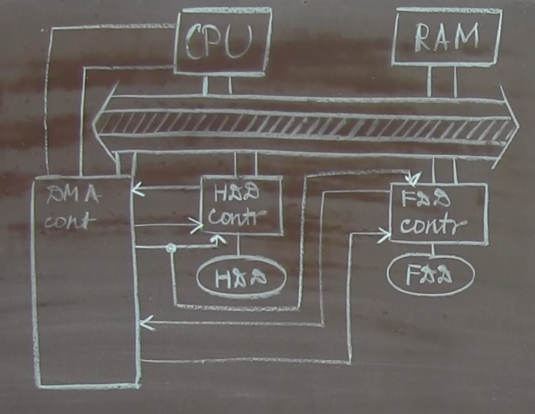 CPU
RAM
DMA
cont
HDD
contr
FDD
contr
HDD
FDD